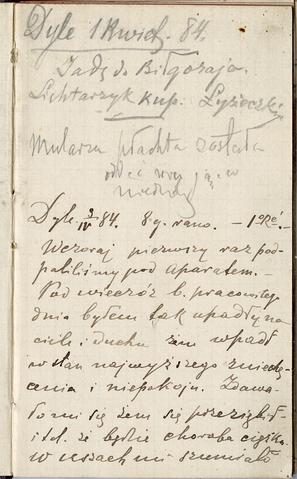 Dyle 1 Kwiet. 84.
Jadę do Biłgoraja.
Lichtarzyk kup. Łyżeczki
Mularza płachta została
oddać
Dyle 3/IV 84. 8 g. rano. — 1°Ré.
Wczoraj pierwszy raz pod-
paliliśmy pod Aparatem. —
Pod wieczór b. pracowitego
dnia byłem tak upadły na
ciele i duchu żem wpadł
w stan najwyższego zniechę-
cenia i niepokoju. Zdawa-
ło mi się żem się przeziębił
i t.d. że będzie choroba ciężka.
W uszach mi szumiało